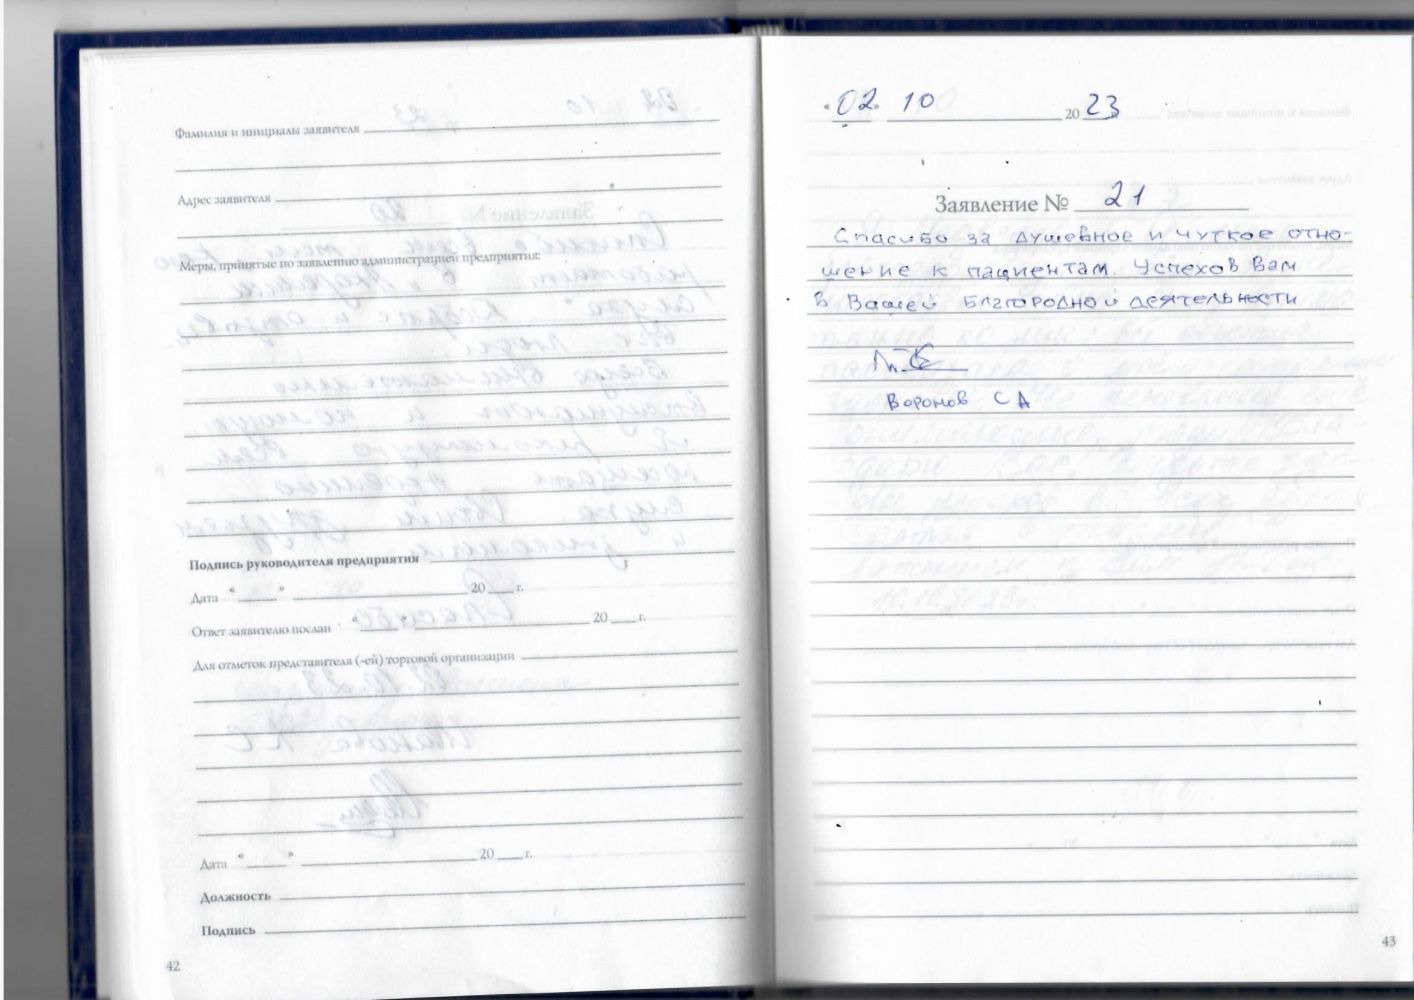 Фамилия и инициалы заявителя
Адрес заявителя
Меры, принятые по заявлению администрацией предприятия:
Подпись руководителя предприятия
Дата " " 20 г.
Ответ заявителю послан " " 20 г.
Для отметок представителя (-ей) торговой организации
Дата " " 20 г.
Должность
Подпись
42
"02" 10 2023
Заявление № 21
Спасибо за душевное и чуткое отно-
шение к пациентам. Успехов Вам
в Вашей благородной деятельности
Воронов С А
43